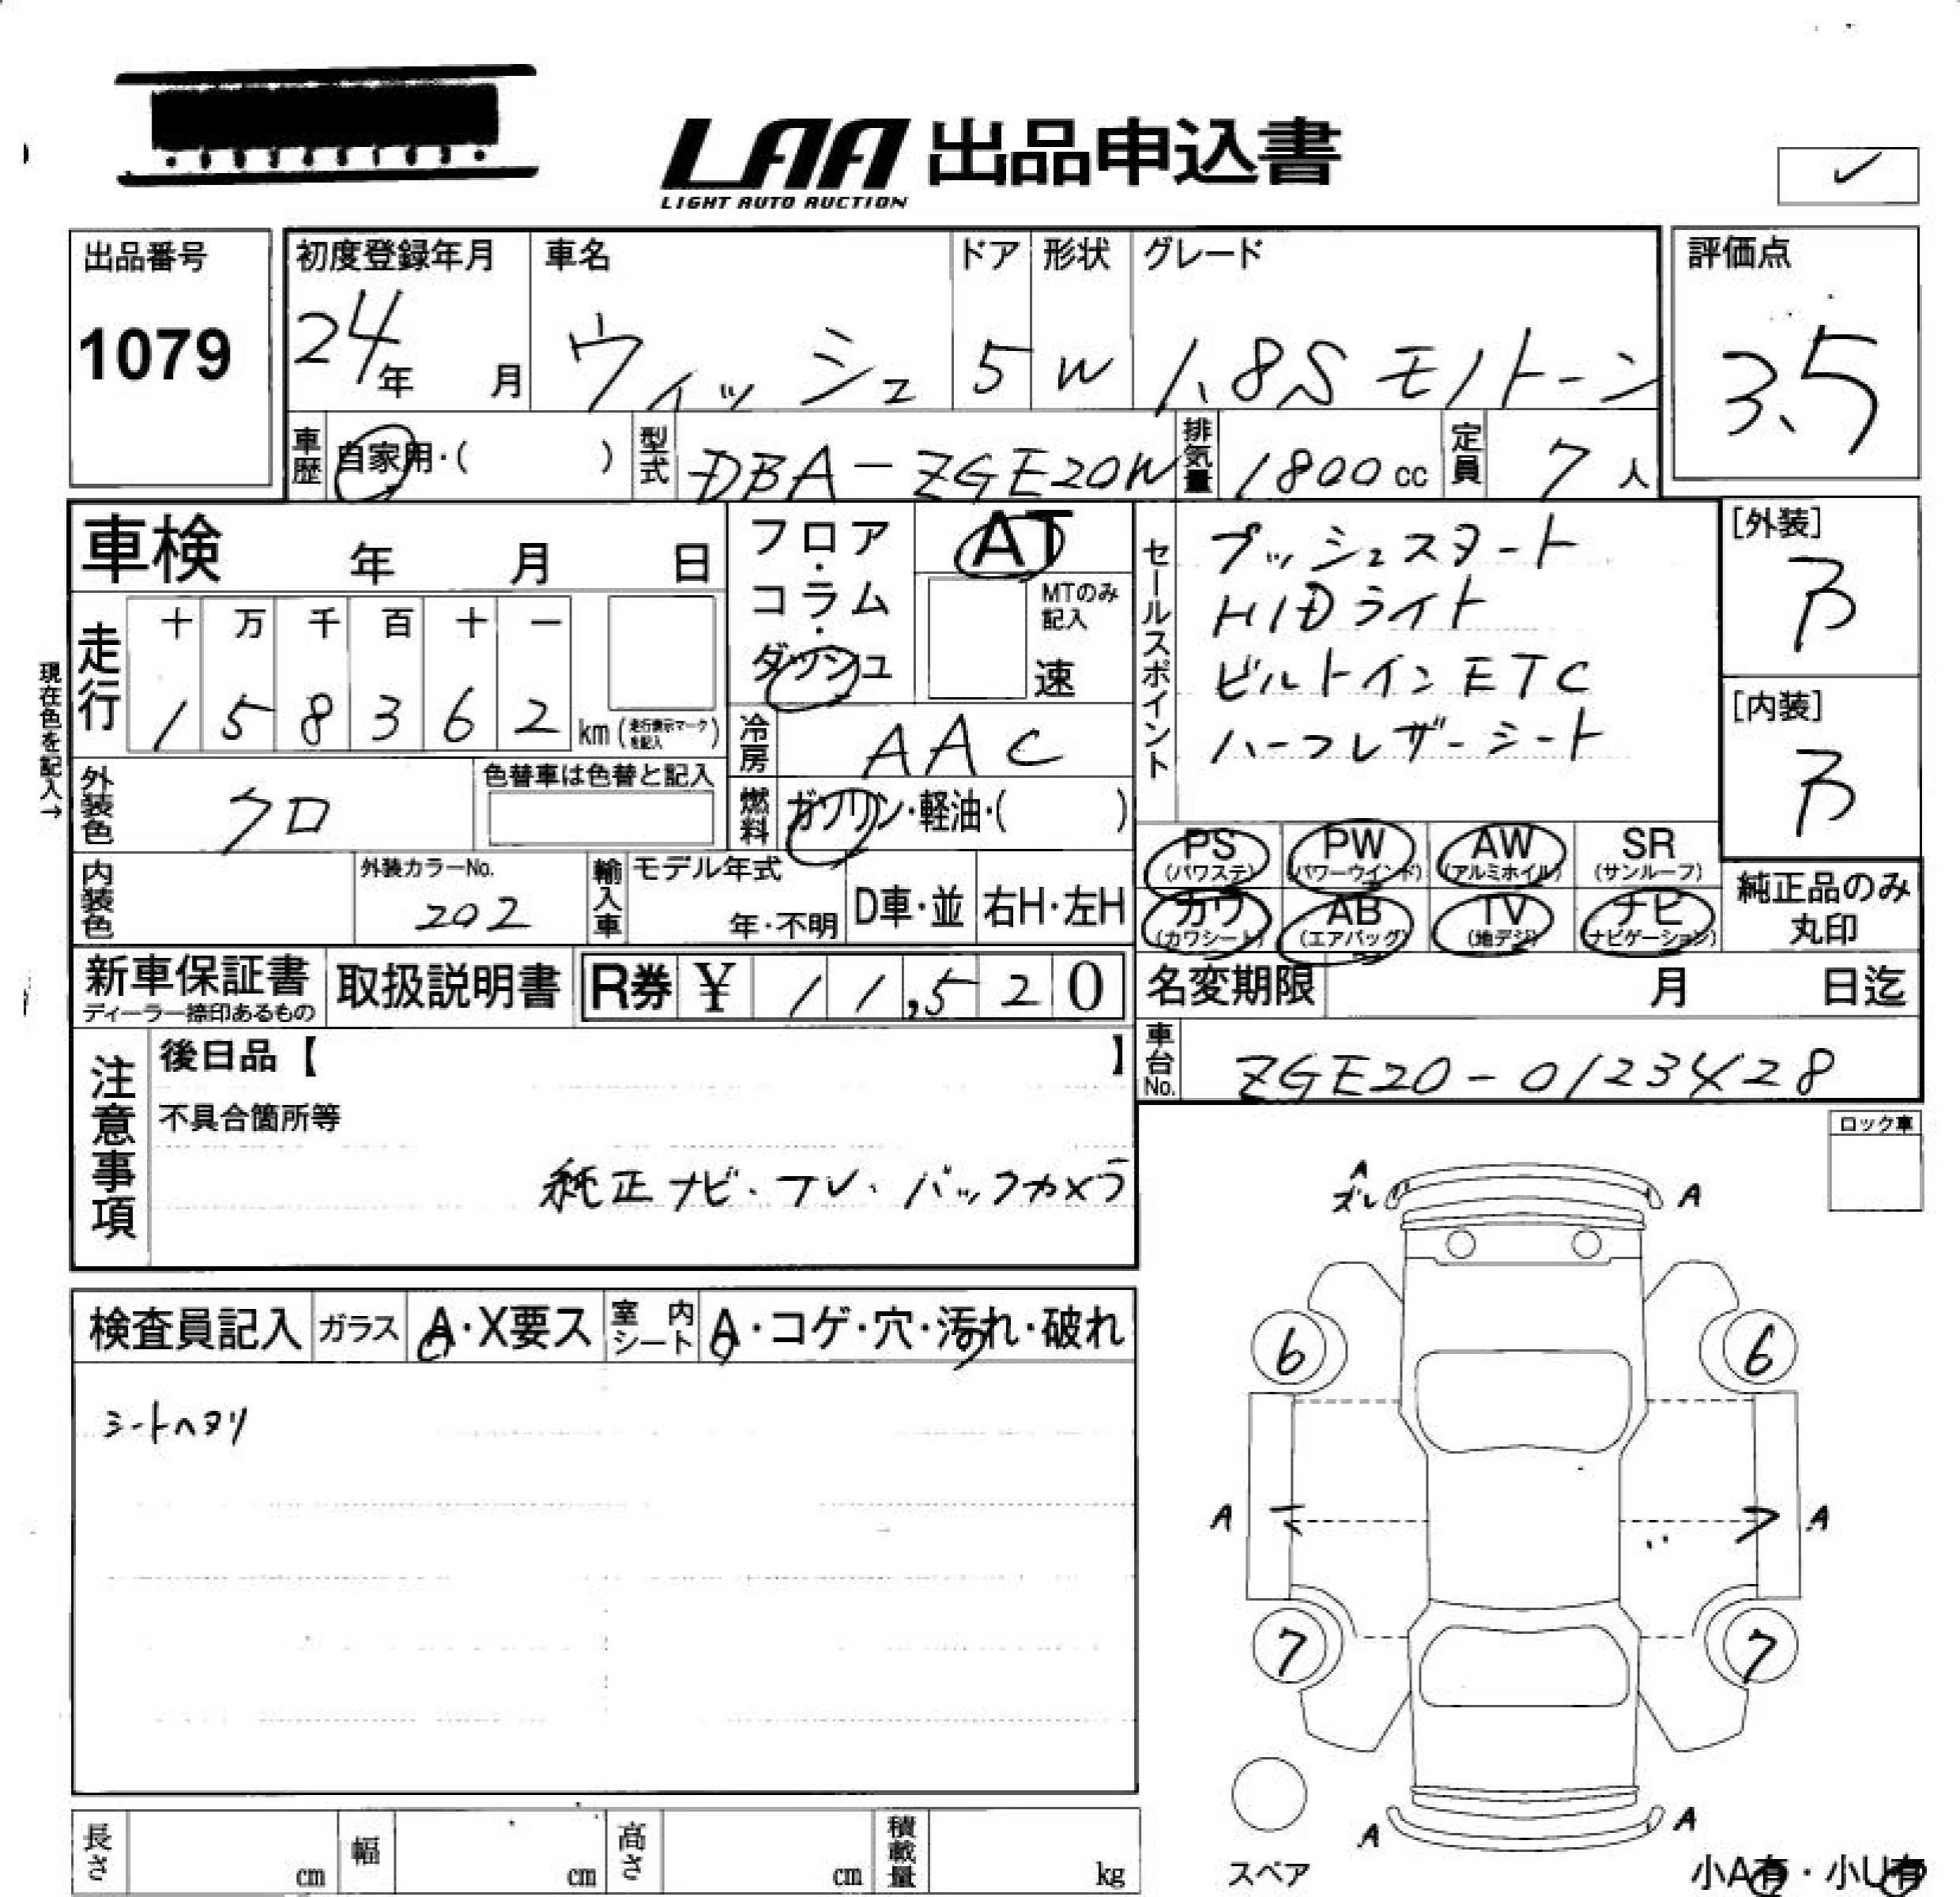 LAA 出品申込書
LIGHT AUTO AUCTION
✓
出品番号
1079
初度登録年月
24年 月
車名
ウィッシュ
ドア
5
形状
W
グレード
1.8S モノトーン
評価点
3.5
車歴 自家用・( )
型式 DBA-ZGE20W
排気量 1800cc
定員 7人
車検 年 月 日
フロア・コラム・ダッシュ
AT
MTのみ記入
速
セールスポイント
プッシュスタート
HIDライト
ビルトインETC
ハーフレザーシート
[外装]
B
[内装]
B
現在色を記入→
走行
十 万 千 百 十 一
1 5 8 3 6 2 km (走行表示マークを記入)
冷房 AAC
外装色 クロ
色替車は色替と記入
燃料 ガソリン・軽油・( )
PS (パワステ)
PW (パワーウインド)
AW (アルミホイル)
SR (サンルーフ)
カワ (カワシート)
AB (エアバッグ)
TV (地デジ)
ナビ (ナビゲーション)
純正品のみ丸印
内装色
外装カラーNo.
202
輸入車
モデル年式
年・不明
D車・並
右H・左H
新車保証書
ディーラー捺印あるもの
取扱説明書
R券 ¥ 11,520
名変期限 月 日迄
車台No. ZGE20-0123428
注意事項
後日品【 】
不具合箇所等
純正ナビ・TV・バックカメラ
ロック車
検査員記入
ガラス A・X要ス
室内シート A・コゲ・穴・汚れ・破れ
シートヘタリ
A
ズレ
A
6
6
A
A
7
7
A
A
スペア
小A有・小U有
長さ cm
幅 cm
高さ cm
積載量 kg